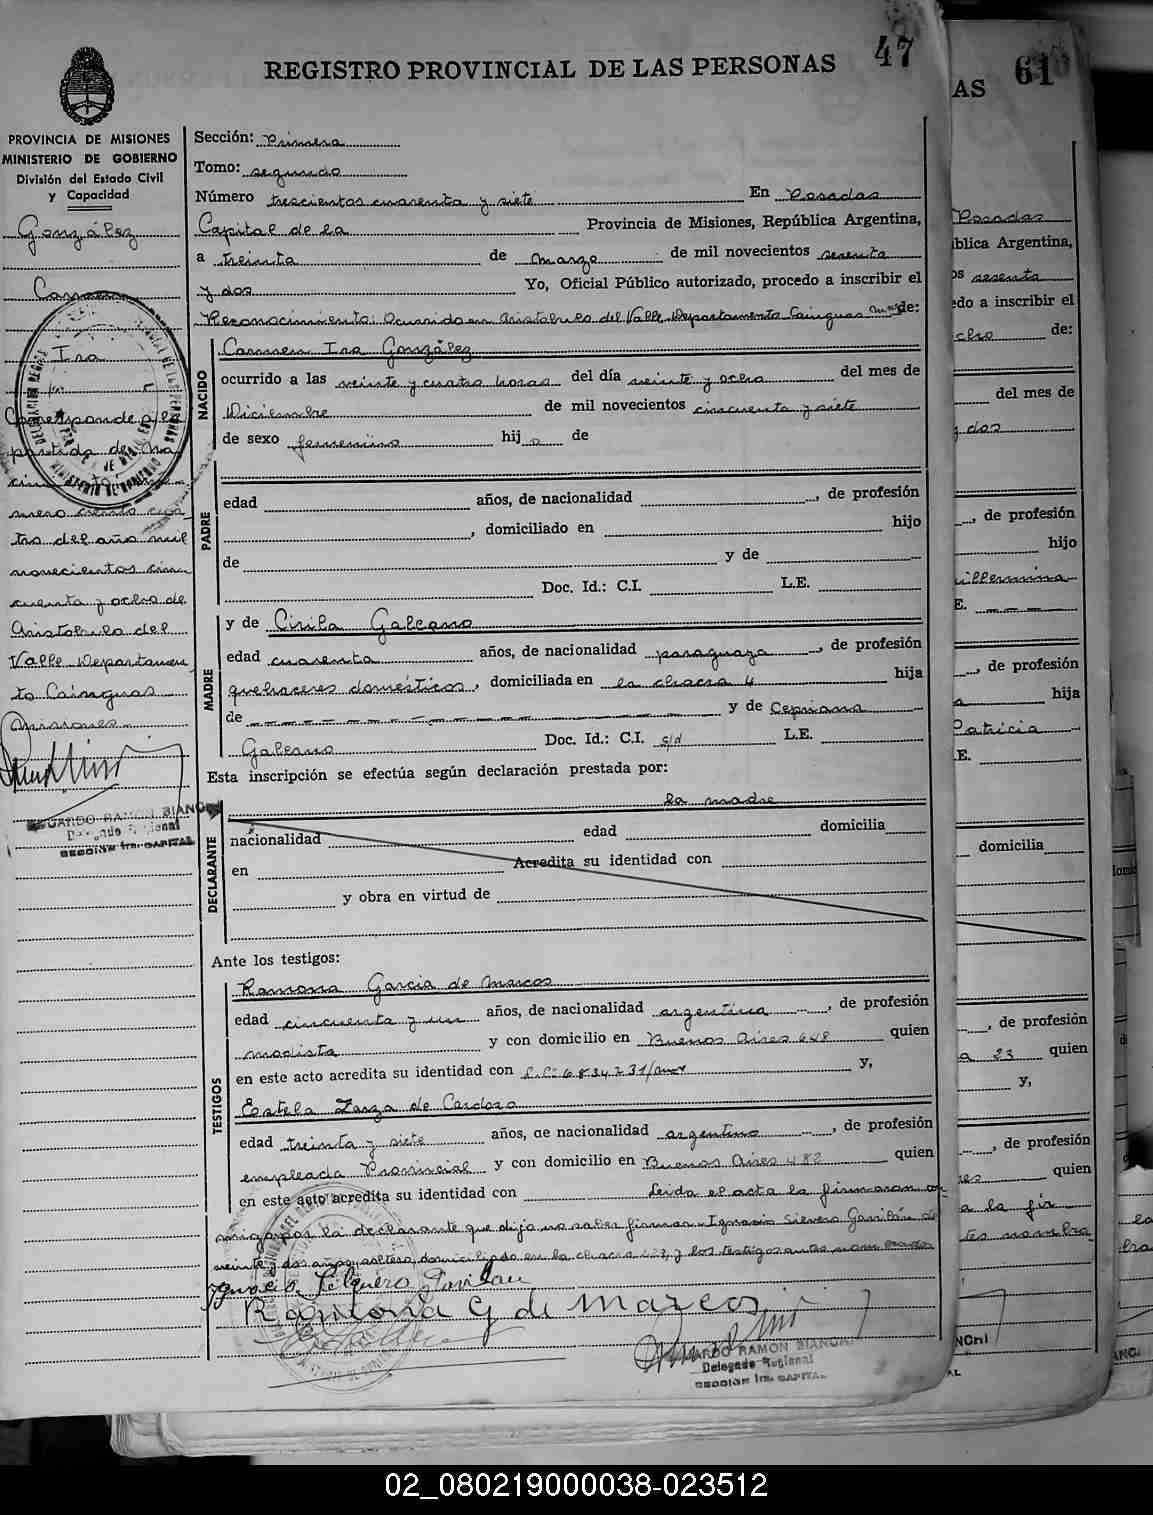 REGISTRO PROVINCIAL DE LAS PERSONAS
47
PROVINCIA DE MISIONES
MINISTERIO DE GOBIERNO
División del Estado Civil
y Capacidad
González
Carmen
Ira
Corresponde a la
partida de Na
cimiento nú
mero ciento cua
tro del año mil
novecientos cin
cuenta y ocho de
Aristobulo del
Valle Departamen
to Cainguas
Misiones
EDUARDO RAMON BIANCHI
Delegado Regional
SECCION 1ra. CAPITAL
Sección: Primera
Tomo: segundo
Número trescientos cuarenta y siete En Posadas
Capital de la Provincia de Misiones, República Argentina,
a treinta de marzo de mil novecientos sesenta
y dos Yo, Oficial Público autorizado, procedo a inscribir el
Reconocimiento: Ocurrido en Aristobulo del Valle Departamento Cainguas Mnes de:
NACIDO
Carmen Ira González
ocurrido a las veinte y cuatro horas del día veinte y ocho del mes de
Diciembre de mil novecientos cincuenta y siete
de sexo femenino hij a de
PADRE
edad años, de nacionalidad , de profesión
, domiciliado en hijo
de y de
Doc. Id.: C.I. L.E.
MADRE
y de Cirila Galeano
edad cuarenta años, de nacionalidad paraguaya , de profesión
quehaceres domésticos , domiciliada en la chacra 4 hija
de y de Cepriana
Galeano Doc. Id.: C.I. s/d L.E.
Esta inscripción se efectúa según declaración prestada por:
la madre
DECLARANTE
nacionalidad edad domicilia
en Acredita su identidad con
y obra en virtud de
Ante los testigos:
TESTIGOS
Ramona Garcia de Marcos
edad cincuenta y un años, de nacionalidad argentina , de profesión
modista y con domicilio en Buenos Aires 648 quien
en este acto acredita su identidad con y,
Estela Zarza de Cardozo
edad treinta y siete años, de nacionalidad argentina , de profesión
empleada Provincial y con domicilio en Buenos Aires 482 quien
en este acto acredita su identidad con Leida el acta la firmaron con
migo por la declarante que dijo no saber firmar Ignacio Gavilán de
veinte y dos años, soltero, domiciliado en la chacra y los testigos antes nombrados
Ramona G de Marcos
EDUARDO RAMON BIANCHI
Delegado Regional
SECCION 1ra. CAPITAL
AS 61
Posadas
ública Argentina,
os sesenta
edo a inscribir el
de:
del mes de
y dos
, de profesión
hijo
uillermina
E.
, de profesión
hija
Patricia
E.
domicilia
, de profesión
23 quien
y,
, de profesión
quien
a la fir
tes nombra
02_080219000038-023512